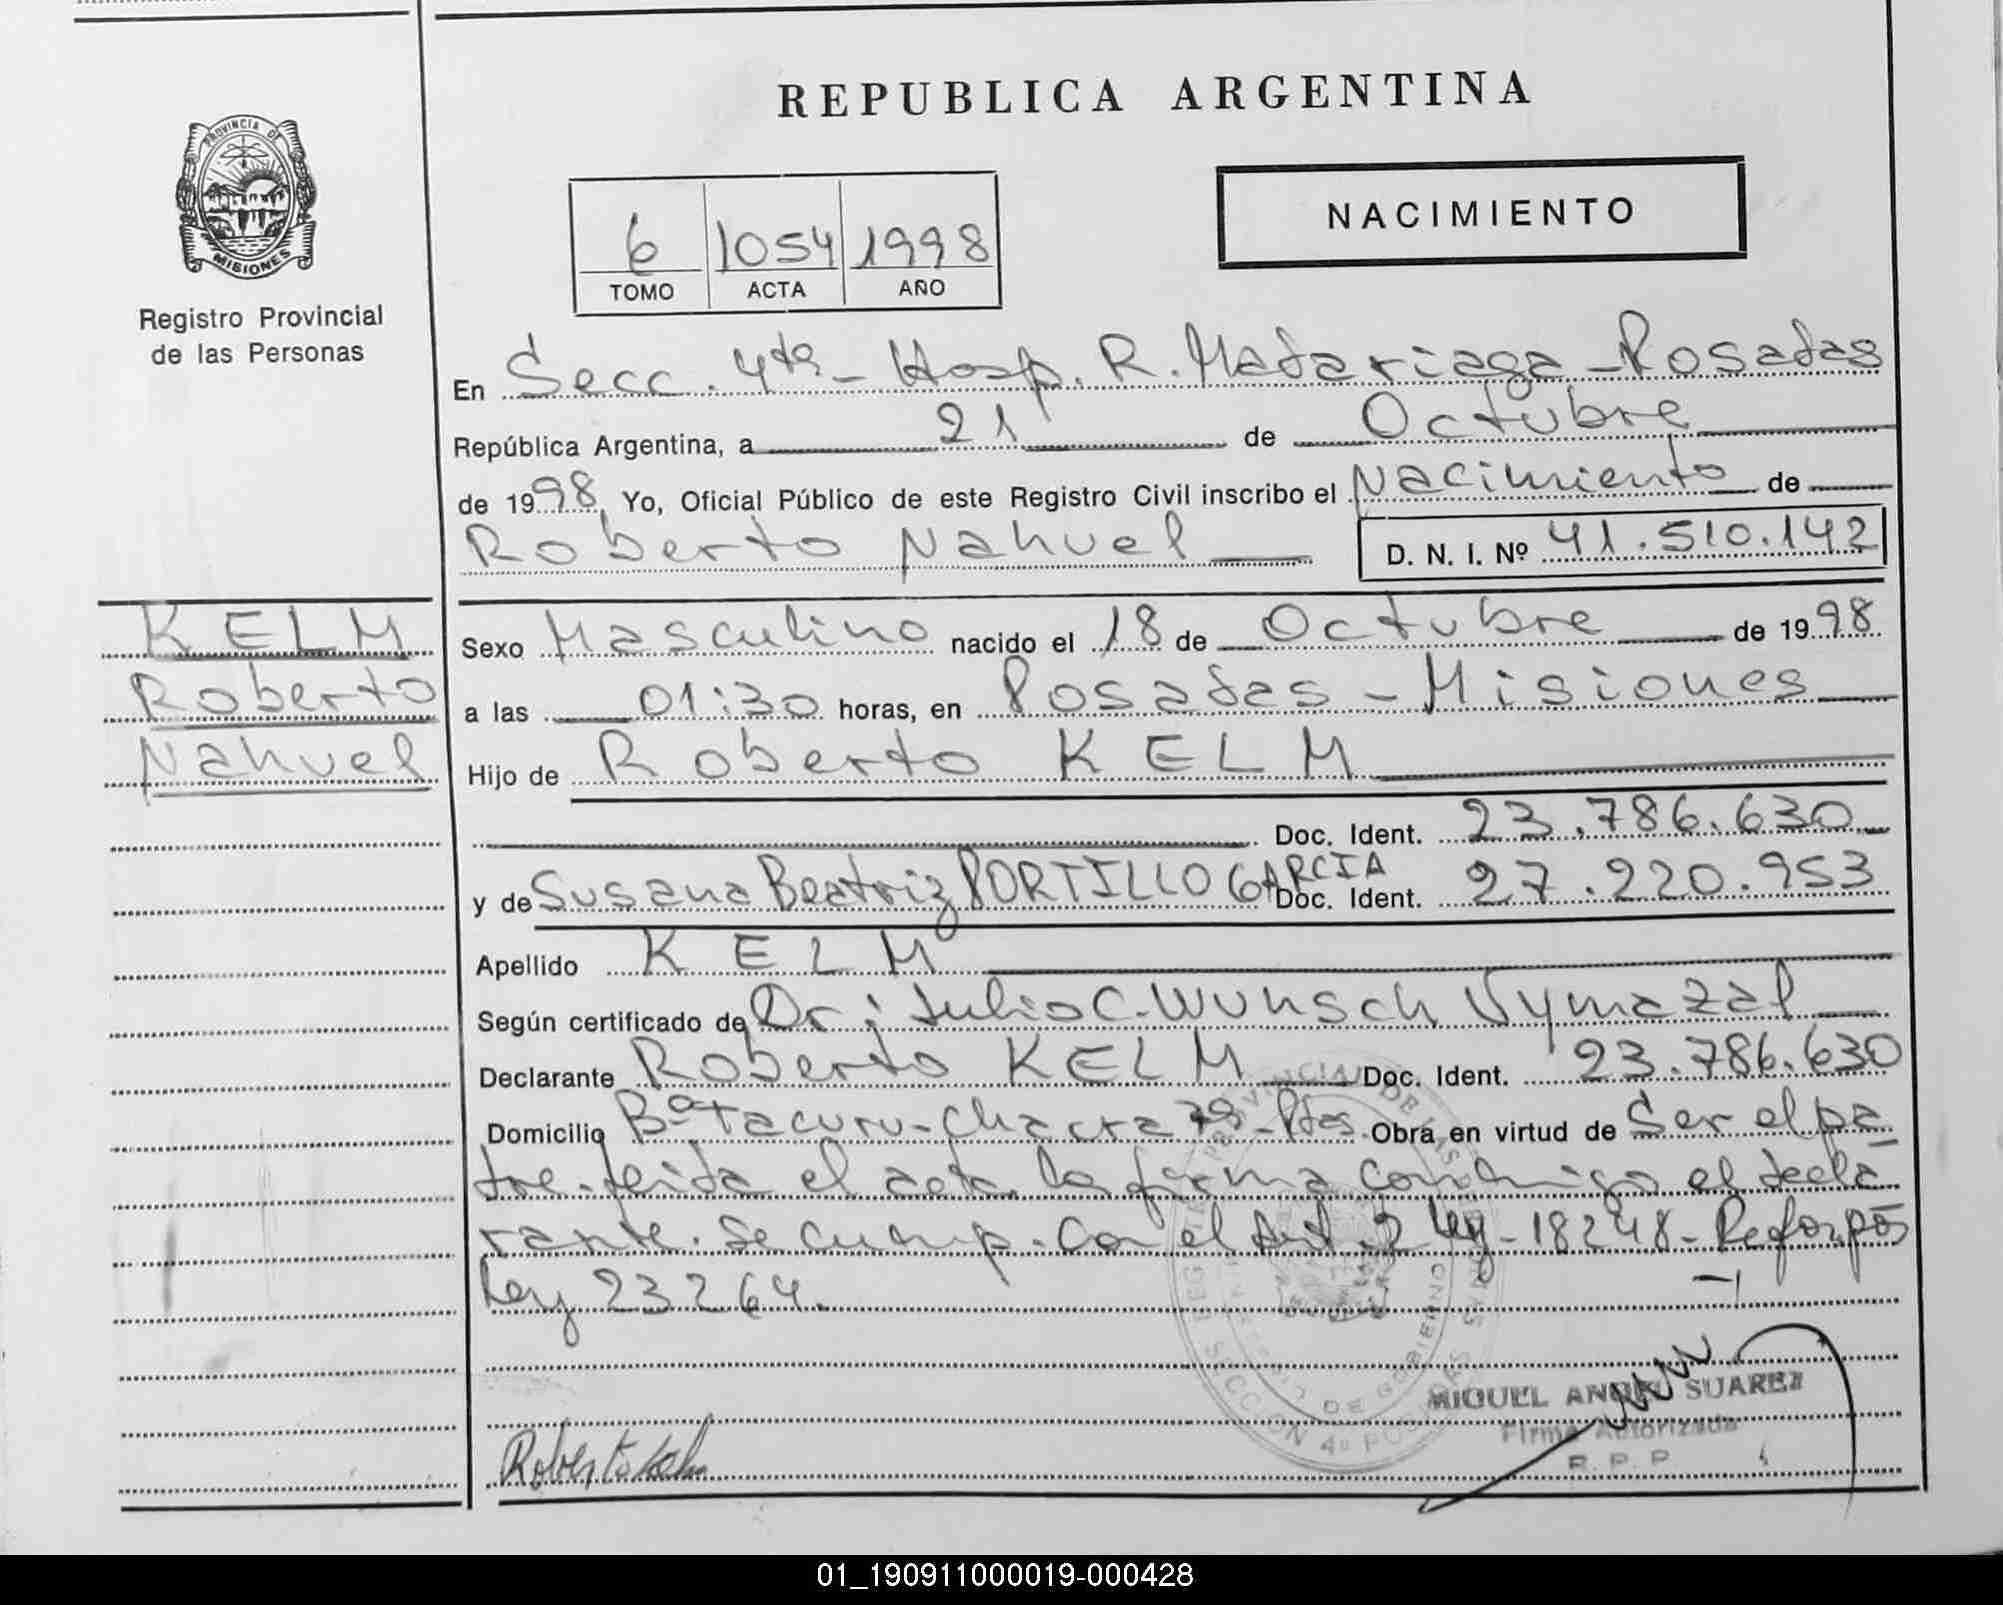 REPUBLICA ARGENTINA
PROVINCIA DE
MISIONES
Registro Provincial
de las Personas
6 1054 1998
TOMO ACTA AÑO
NACIMIENTO
En Secc. 4ta - Hosp. R. Madariaga - Posadas
República Argentina, a 21 de Octubre
de 1998 Yo, Oficial Público de este Registro Civil inscribo el Nacimiento de
Roberto Nahuel D. N. I. Nº 41.510.142
KELM
Roberto
Nahuel
Sexo Masculino nacido el 18 de Octubre de 1998
a las 01:30 horas, en Posadas - Misiones
Hijo de Roberto KELM
Doc. Ident. 23.786.630
y de Susana Beatriz PORTILLO GARCIA Doc. Ident. 27.220.953
Apellido KELM
Según certificado de Dr: Julio C. Wunsch Vymazal
Declarante Roberto KELM Doc. Ident. 23.786.630
Domicilio Bº Tacuru - Chacra - Pdas. Obra en virtud de Ser el pa
dre. leida el acta la firma conmigo el decla
rante. Se cump. Con el Art. 2 Ley - 18248 - Ref. por
Ley 23264.
SECCION 4º POSADAS
MIGUEL ANGEL SUAREZ
Firma Autorizada
R. P. P
Roberto Kelm
01_190911000019-000428